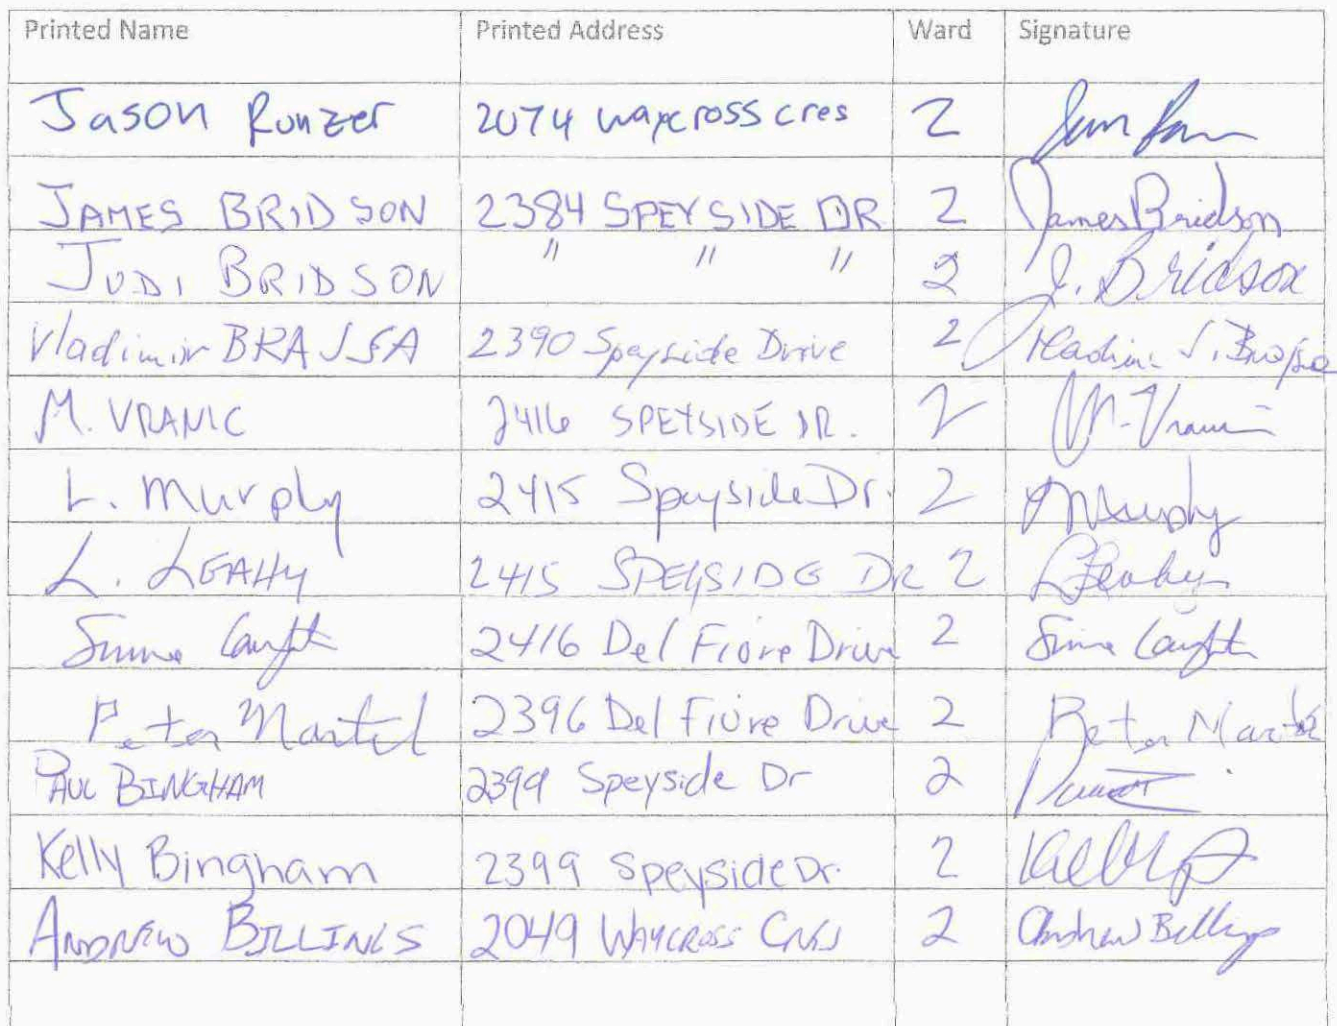 Printed Name Printed Address Ward Signature
Jason Runzer 2074 waycross cres 2
JAMES BRIDSON 2384 SPEYSIDE DR 2 James Bridson
JUDI BRIDSON " " " 2 J. Bridson
Vladimir BRAJSA 2390 Speyside Drive 2
M. VRANIC 2416 SPEYSIDE DR. 2 M. Vranic
L. Murphy 2415 Speyside Dr. 2 Murphy
L. LEAHY 2415 SPEYSIDE DR 2 L Leahy
2416 Del Fiore Drive 2
Peter Martel 2396 Del Fiore Drive 2 Peter Martel
PAUL BINGHAM 2399 Speyside Dr 2
Kelly Bingham 2399 Speyside Dr. 2
ANDREW BILLINGS 2049 WAYCROSS CRES 2 Andrew Billings